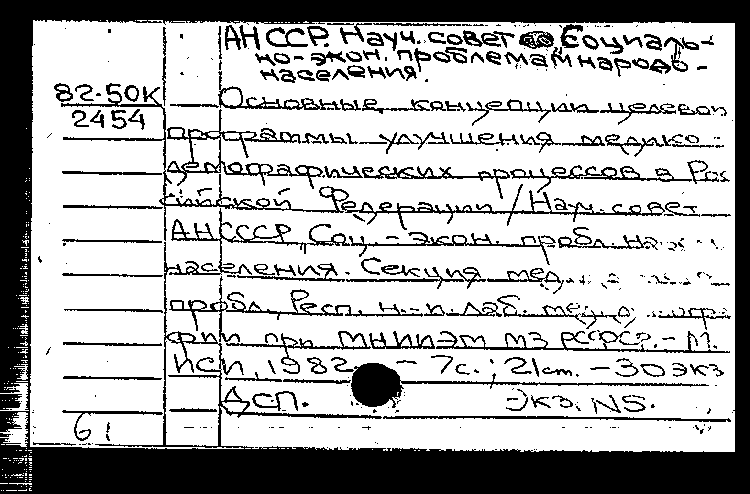 АН СССР. Науч. совет Социаль-
но-экон. проблемам народо-
населения.
82-50К
2454
Основные концепции целевой
программы улучшения медико-
демографических процессов в Рос
сийской Федерации / Науч. совет
АНСССР, Соц.-экон. пробл.
населения. Секция мед
пробл., Респ. н.-и. лаб.
фии при МНИИЭМ МЗ РСФСР. - М.
ИСИ, 1982 - 7с.; 21см. - 30 экз
ДСП. Экз. N5.
61